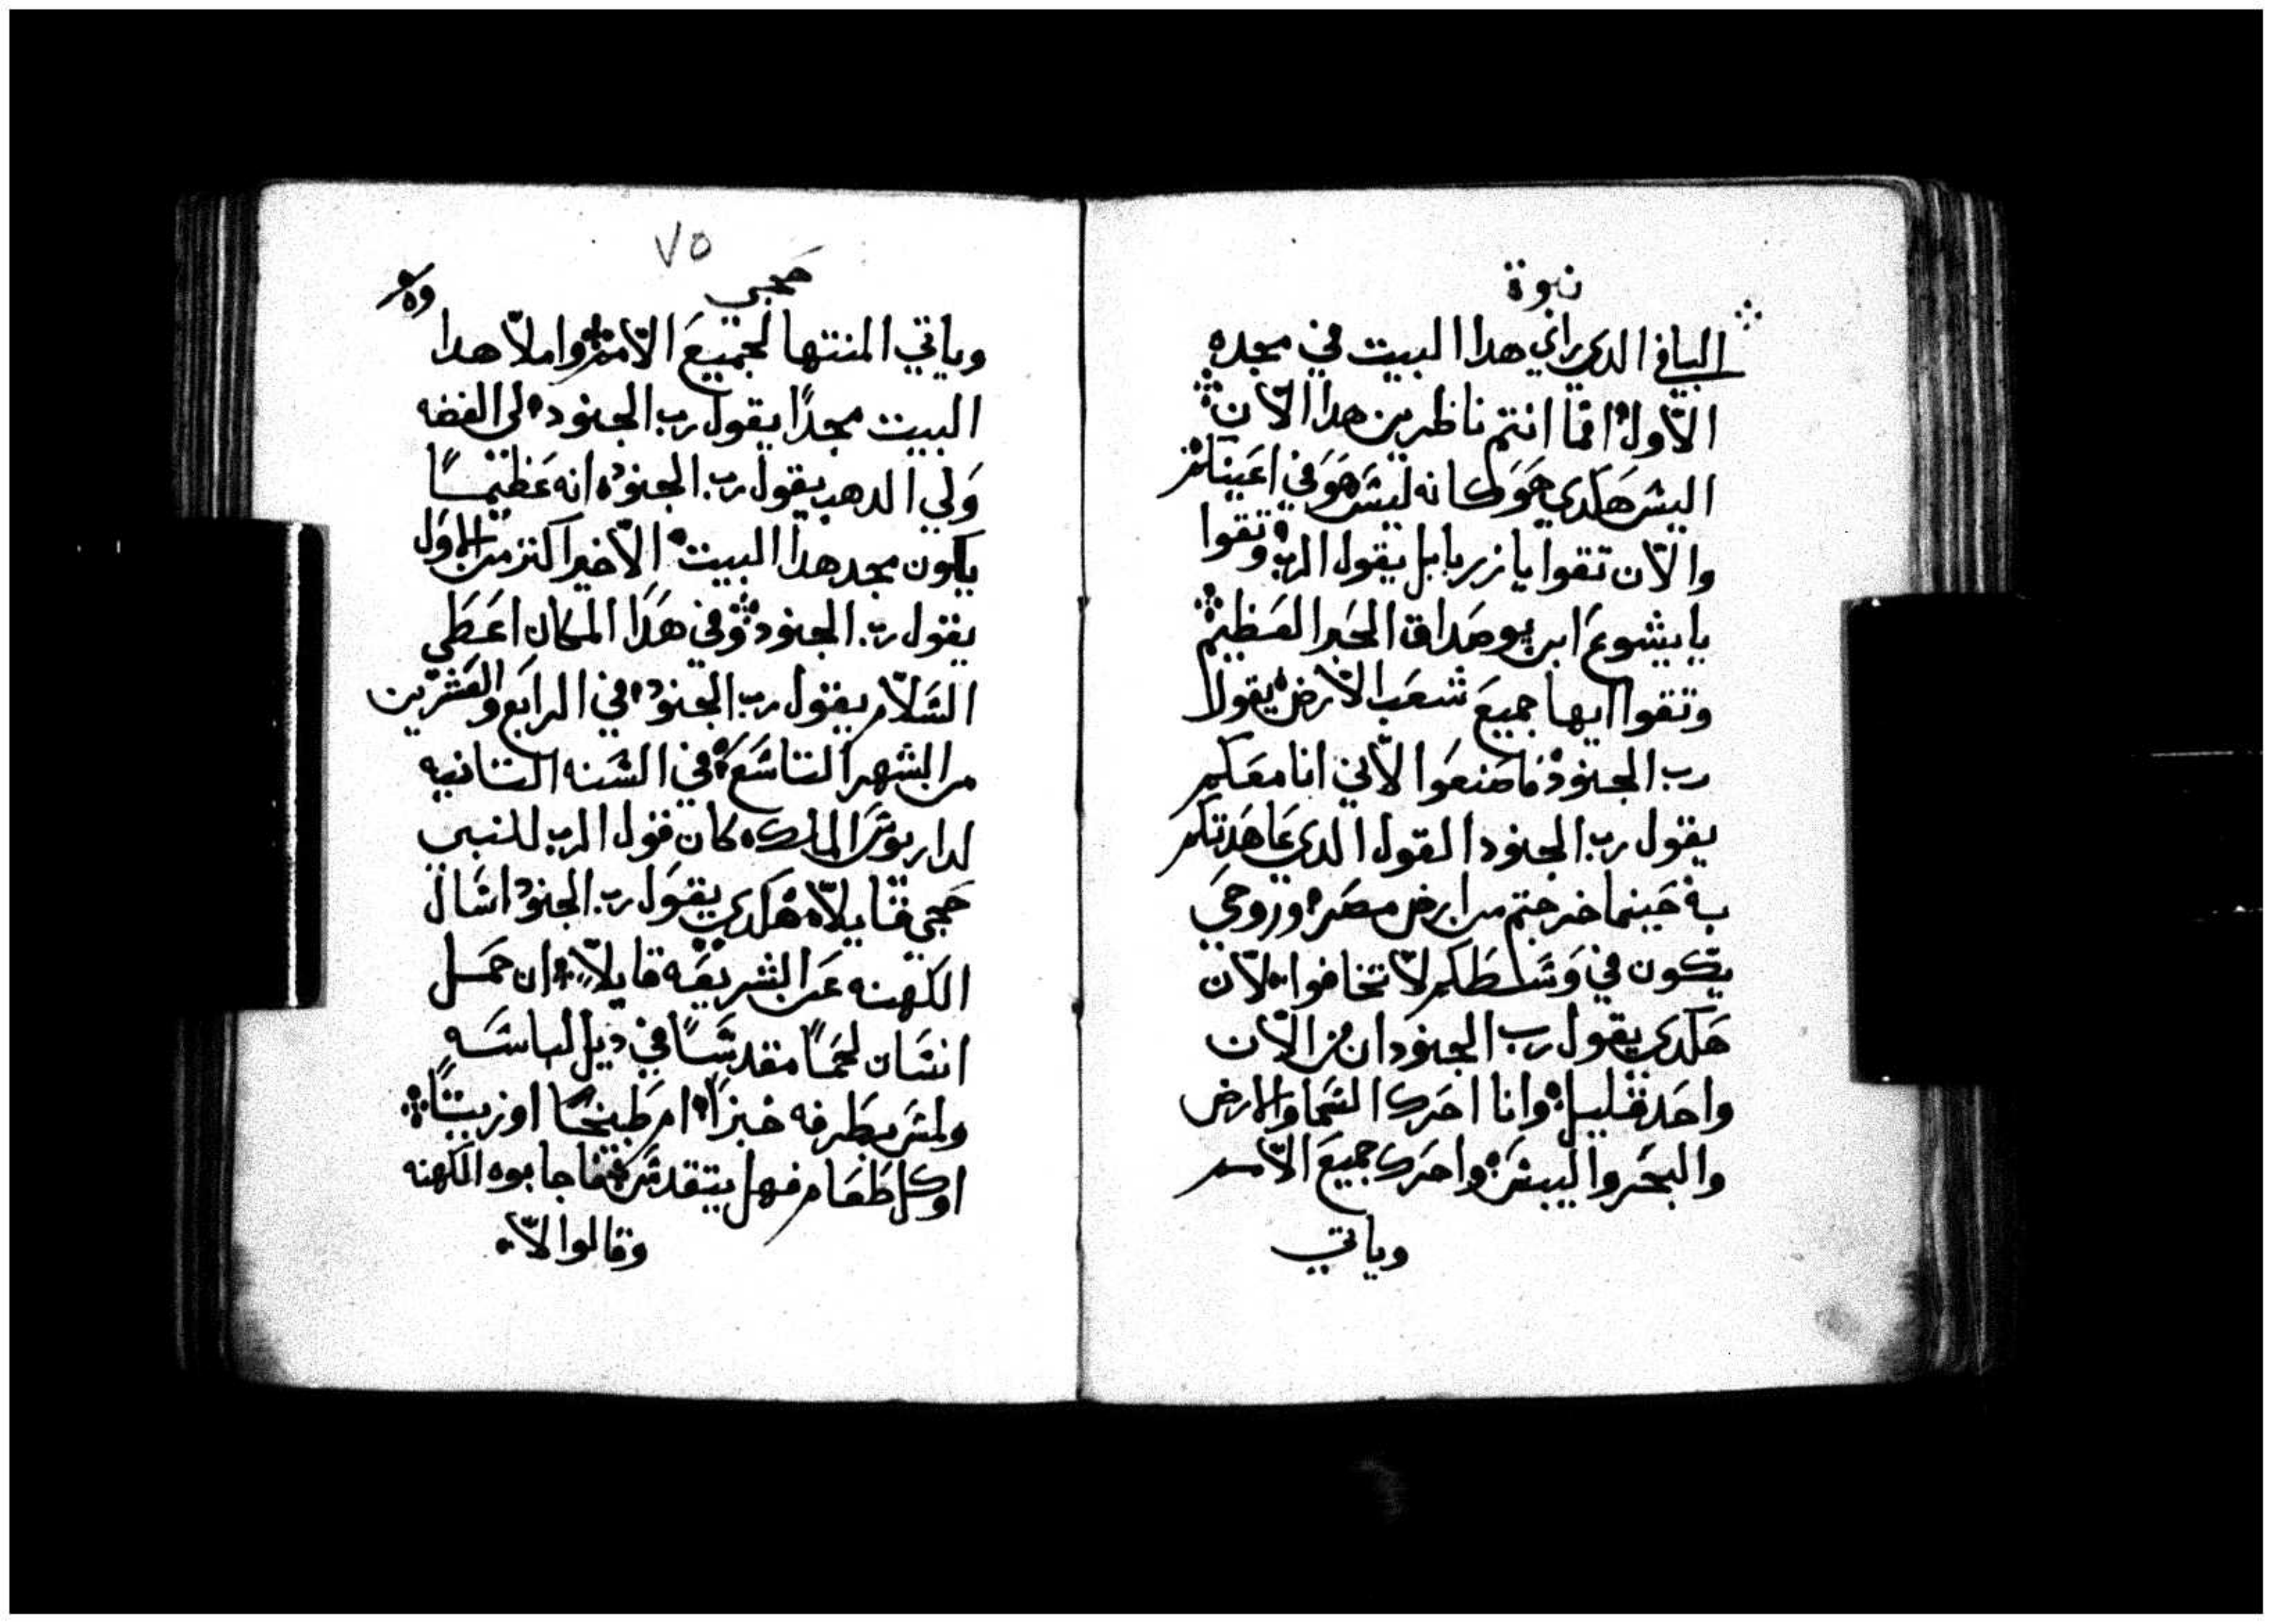 نبوة
الباقي الدي راي هدا البيت في مجده
الاول افما انتم ناظرين هدا الآن
اليس هكدي هو كانه ليس هو في اعينكم
والآن تقوا يا زربابل يقول الرب وتقوا
يا يشوع ابن يوصداق الحبر العظيم
وتقوا ايها جميع شعب الارض يقول
رب الجنود فاصنعوا لآني انا معكم
يقول رب الجنود القول الدي عاهدتكم
به حينما خرجتم من ارض مصر وروحي
يكون في وسطكم لا تخافوا لآن
هكدي يقول رب الجنود ان من الآن
واحد قليل وانا احرك السما والارض
والبحر واليبس واحرك جميع الآمم
وياتي
٧٥
حجي
وياتي المنتها لجميع الآمم واملآ هدا
البيت مجدًا يقول رب الجنود لي الفضه
ولي الدهب يقول رب الجنود انه عظيمًا
يكون مجد هدا البيت الآخير اكتر من الاول
يقول رب الجنود وفي هدا المكان اعطي
السلآم يقول رب الجنود في الرابع والعشرين
من الشهر التاسع في السنه التانيه
لداريوس الملك كان قول الرب للنبي
حجي قايلآ هكدي يقول رب الجنود اسال
الكهنه عن الشريعه قايلآ ان حمل
انسان لحمًا مقدسًا في ديل لباسه
ولمس بطرفه خبزًا ام طبيخًا او زيتًا
او كل طعام فهل يتقدس فاجابوه الكهنه
وقالوا لآ